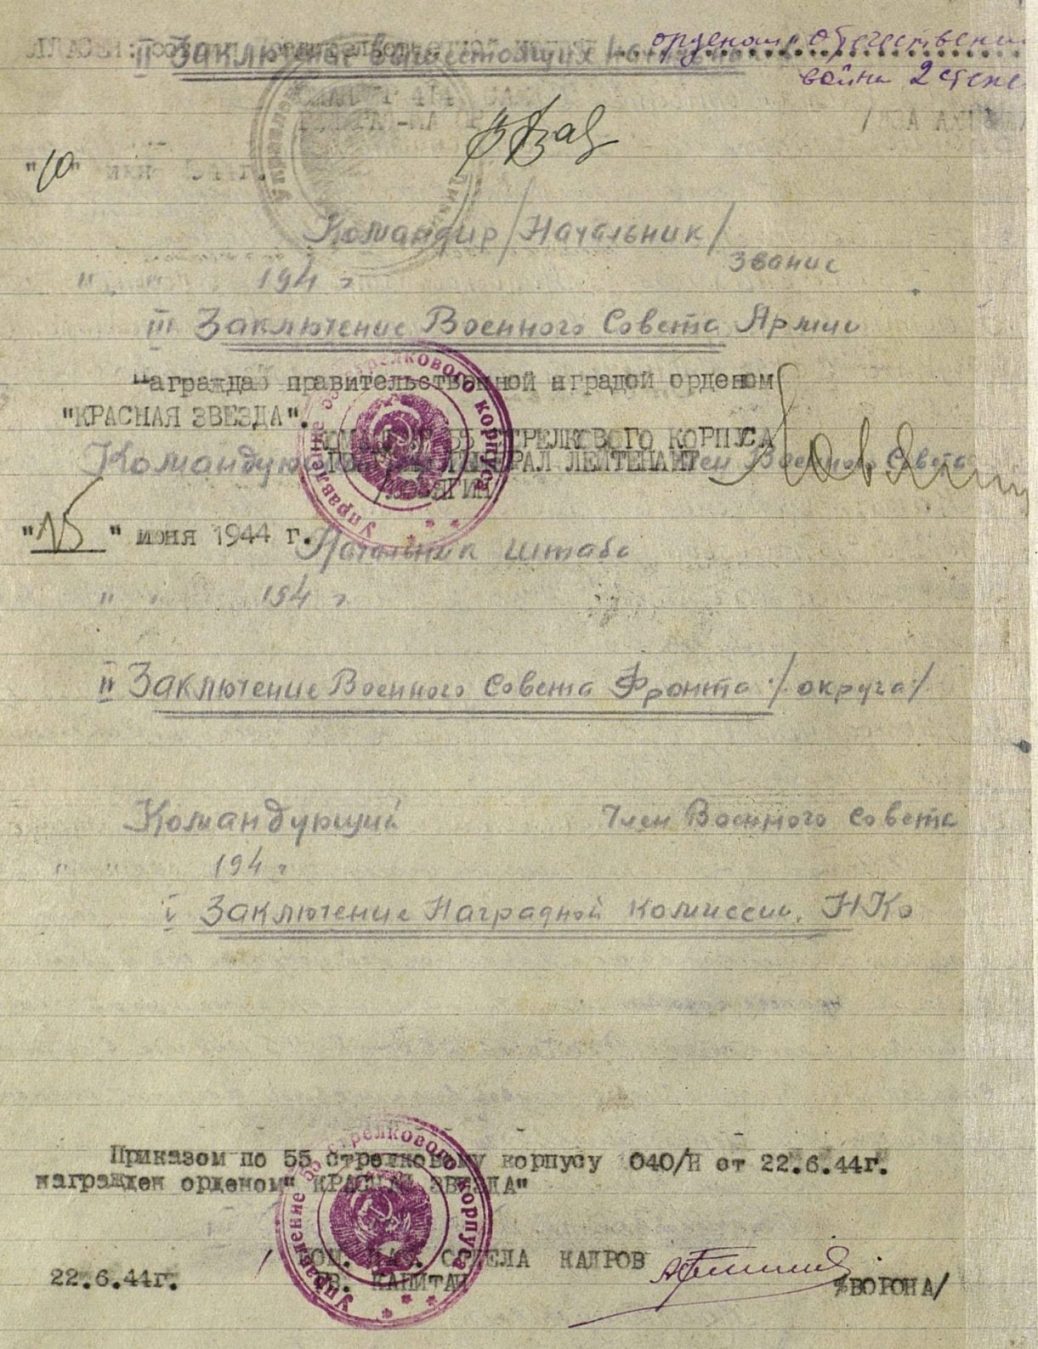 орденом Отечественн
II Заключение вышестоящих начальников
война 2 степе
"10"
Командир /Начальник/
звание
" " 194 г
III Заключение Военного Совета Армии
Награждаю правительственной наградой орденом
"КРАСНАЯ ЗВЕЗДА".
КОМАНДИР 55 СТРЕЛКОВОГО КОРПУСА
Командующий Член Военного Совета
ГЕНЕРАЛ ЛЕЙТЕНАНТ
/ЛОВЯГИН
"15" июня 1944 г.
Начальник штаба
" " 194 г
Управление 55 стрелкового корпуса
II Заключение Военного Совета Фронта /округа/
Командующий Член Военного Совета
" " 194 г
V Заключение Наградной комиссии НКО
Приказом по 55 стрелковому корпусу 040/Н от 22.6.44г.
награжден орденом "КРАСНАЯ ЗВЕЗДА"
Управление 55 стрелкового корпуса
ПОМ. НАЧ. ОТДЕЛА КАДРОВ
ГВ. КАПИТАН
22.6.44г.
/ВОРОНА/